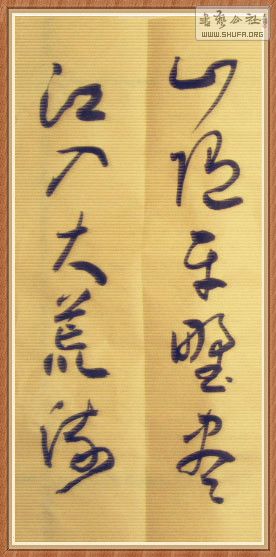 山随平野尽
江入大荒流
书艺公社
WWW.SHUFA.ORG